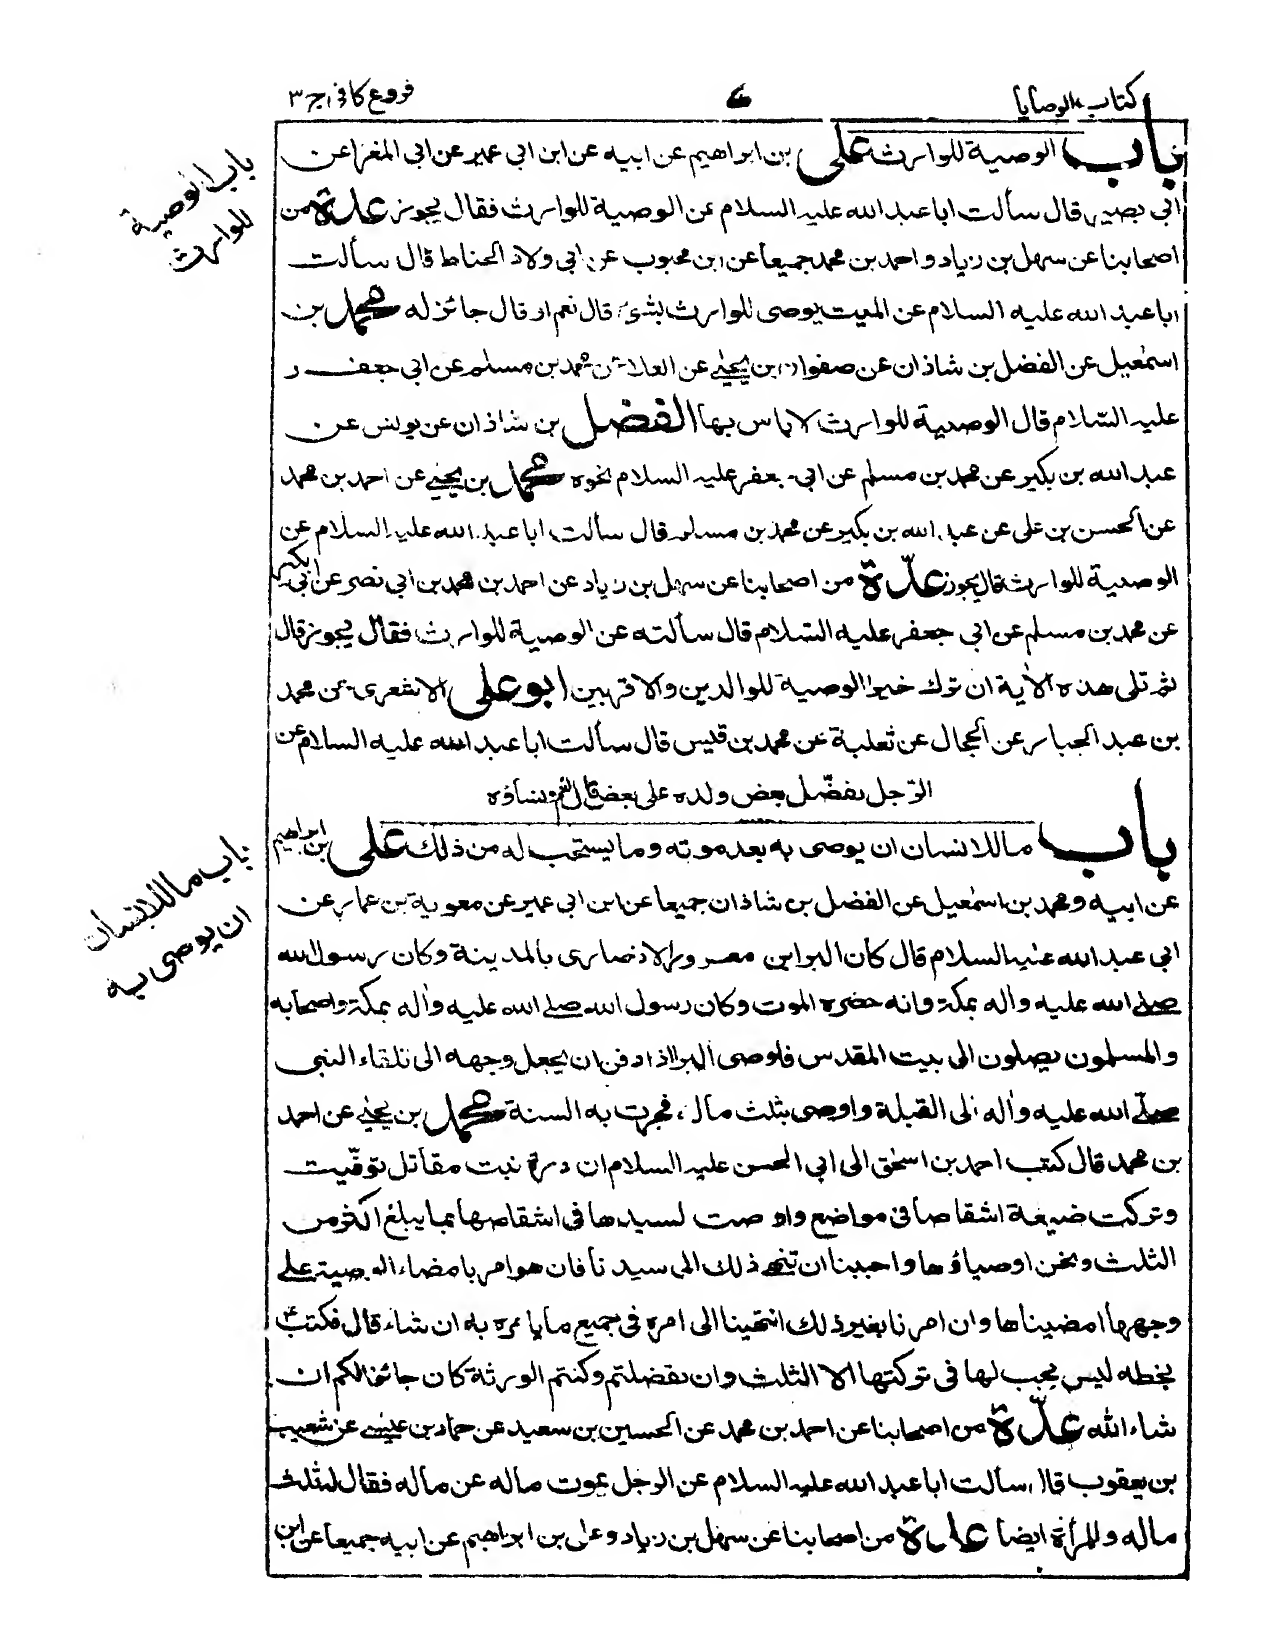 كتاب الوصايا
فروع كافى ج ٣
باب الوصية للوارث على بن ابراهيم عن ابيه عن ابن ابى عمير عن ابى المغرا عن
ابى بصير قال سألت ابا عبد الله عليه السلام عن الوصية للوارث فقال يجوز عدة من
اصحابنا عن سهل بن زياد و احمد بن محمد جميعا عن ابن محبوب عن ابى ولاد الحناط قال سألت
ابا عبد الله عليه السلام عن الميت يوصى للوارث بشىء قال نعم او قال جائز له محمد بن
اسمعيل عن الفضل بن شاذان عن صفوان بن يحيى عن العلا عن محمد بن مسلم عن ابى جعفر
عليه السلام قال الوصية للوارث لا باس بها الفضل بن شاذان عن يونس عن
عبد الله بن بكير عن محمد بن مسلم عن ابى جعفر عليه السلام نحوه محمد بن يحيى عن احمد بن محمد
عن الحسن بن على عن عبد الله بن بكير عن محمد بن مسلم قال سألت ابا عبد الله عليه السلام عن
الوصية للوارث قال يجوز عدّة من اصحابنا عن سهل بن زياد عن احمد بن محمد بن ابى نصر عن ابن بكير
عن محمد بن مسلم عن ابى جعفر عليه السلام قال سألته عن الوصية للوارث فقال يجوز قال
ثم تلى هذه الأية ان ترك خيرا الوصية للوالدين والاقربين ابو على الاشعرى عن محمد
بن عبد الجبار عن الحجال عن ثعلبة عن محمد بن قيس قال سألت ابا عبد الله عليه السلام عن
الرّجل يفضّل بعض ولده على بعض قال نعم ونساؤه
باب ما للانسان ان يوصى به بعد موته وما يستحب له من ذلك على بن ابراهيم
عن ابيه ومحمد بن اسمعيل عن الفضل بن شاذان جميعا عن ابن ابى عمير عن معوية بن عمار عن
ابى عبد الله عليه السلام قال كان البرا بن معرور الانصارى بالمدينة وكان رسول الله
صلى الله عليه وأله بمكة وانه حضره الموت وكان رسول الله صلى الله عليه وأله بمكة واصحابه
والمسلمون يصلون الى بيت المقدس فاوصى البرا اذا دفن ان يجعل وجهه الى تلقاء النبى
صلى الله عليه وأله الى القبلة واوصى بثلث ماله فجرت به السنة محمد بن يحيى عن احمد
بن محمد قال كتب احمد بن اسحٰق الى ابى الحسن عليه السلام ان درة بنت مقاتل توفّيت
وتركت ضيعة اشقاصا فى مواضع واوصت لسيدها فى اشقاصها بما يبلغ اكثر من
الثلث ونحن اوصياؤها واحببنا ان ننهى ذلك الى سيدنا فان هو امر بامضاء الوصية على
وجهها امضيناها وان امرنا بغير ذلك انتهينا الى امره فى جميع ما يامره به ان شاء قال فكتب ع
بخطه ليس يجب لها فى تركتها الا الثلث وان تفضلتم وكنتم الورثة كان جائزا لكم ان
شاء الله عدّة من اصحابنا عن احمد بن محمد عن الحسين بن سعيد عن حماد بن عيسى عن شعيب
بن يعقوب قال سألت ابا عبد الله عليه السلام عن الرجل يموت ماله عن ماله فقال له ثلث
ماله وللمرأة ايضا عدة من اصحابنا عن سهل بن زياد وعلى بن ابراهيم عن ابيه جميعا عن ابن
باب الوصية
للوارث
باب ما للانسان
ان يوصى به